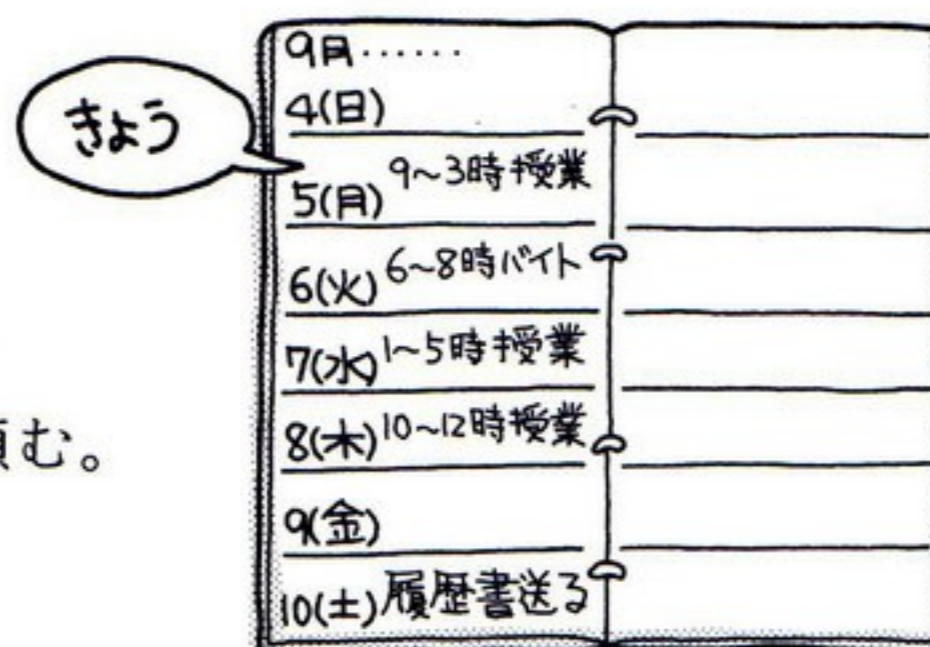 きょう
9月……
4(日)
5(月) 9~3時授業
6(火) 6~8時バイト
7(水) 1~5時授業
8(木) 10~12時授業
9(金)
10(土) 履歴書送る
む。